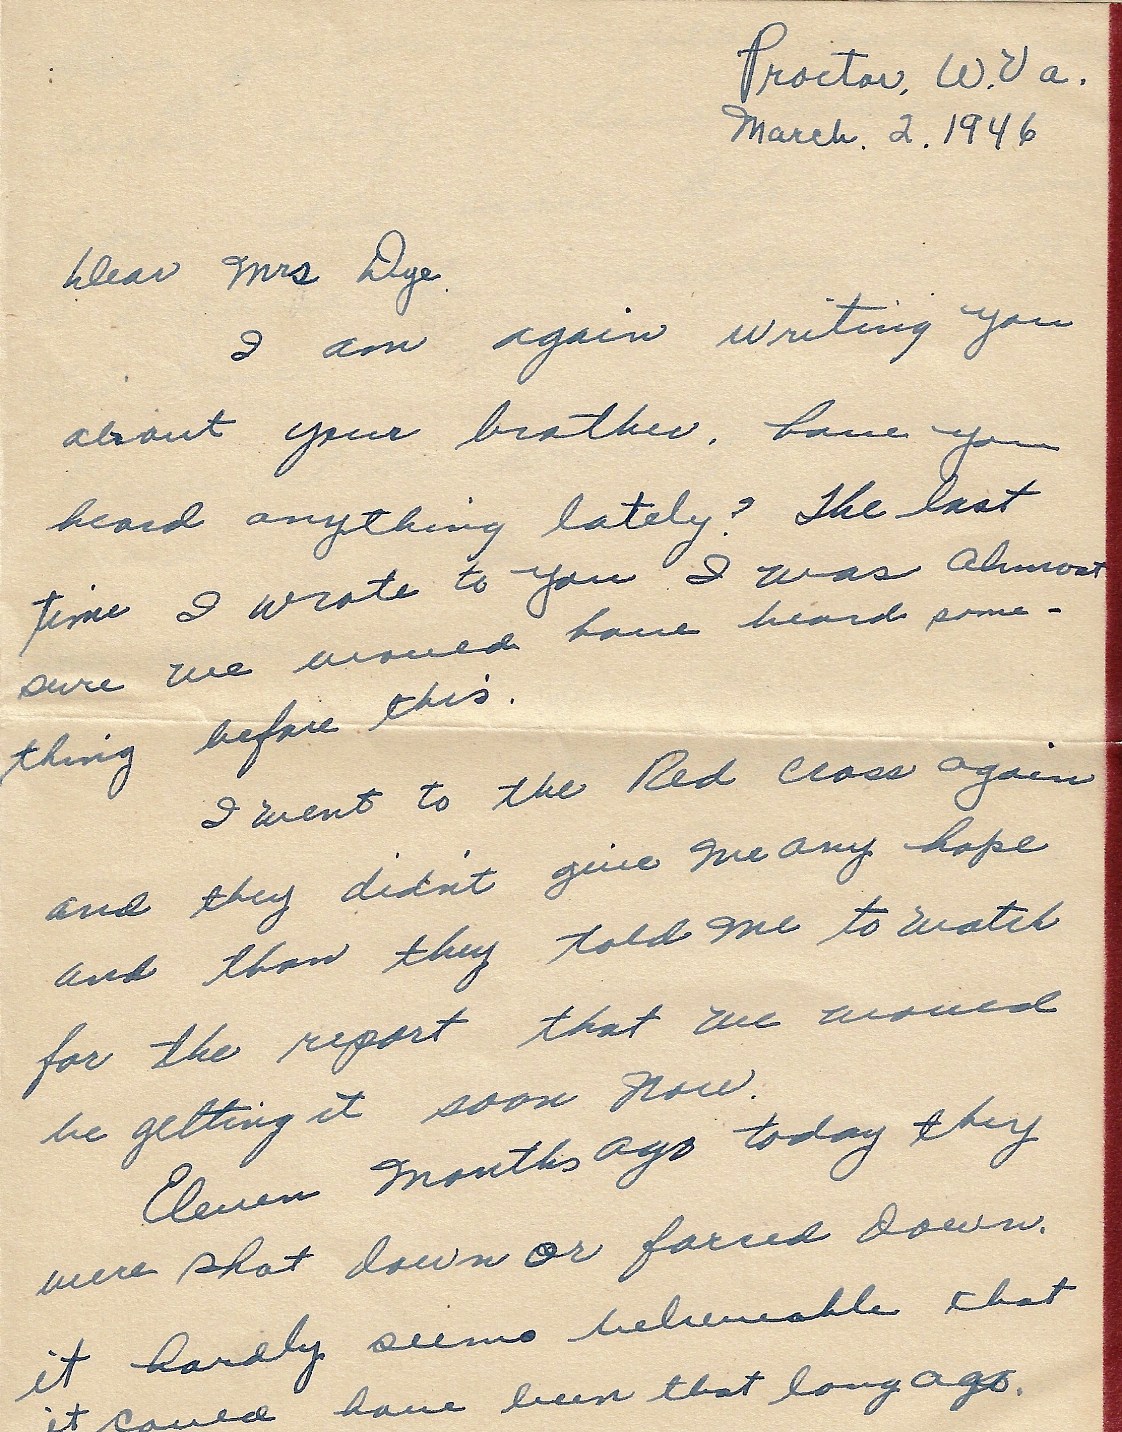 Proctor, W.Va.
March. 2. 1946
Dear Mrs Dye.
I am again writing you
about your brother. have you
heard anything lately? The last
time I wrote to you I was almost
sure we would have heard some-
thing before this.
I went to the Red Cross again
and they didn't give me any hope
and than they told me to watch
for the report that we would
be getting it soon now.
Eleven Months ago today they
were shot down or forced down.
it hardly seems believeable that
it could have been that long ago.